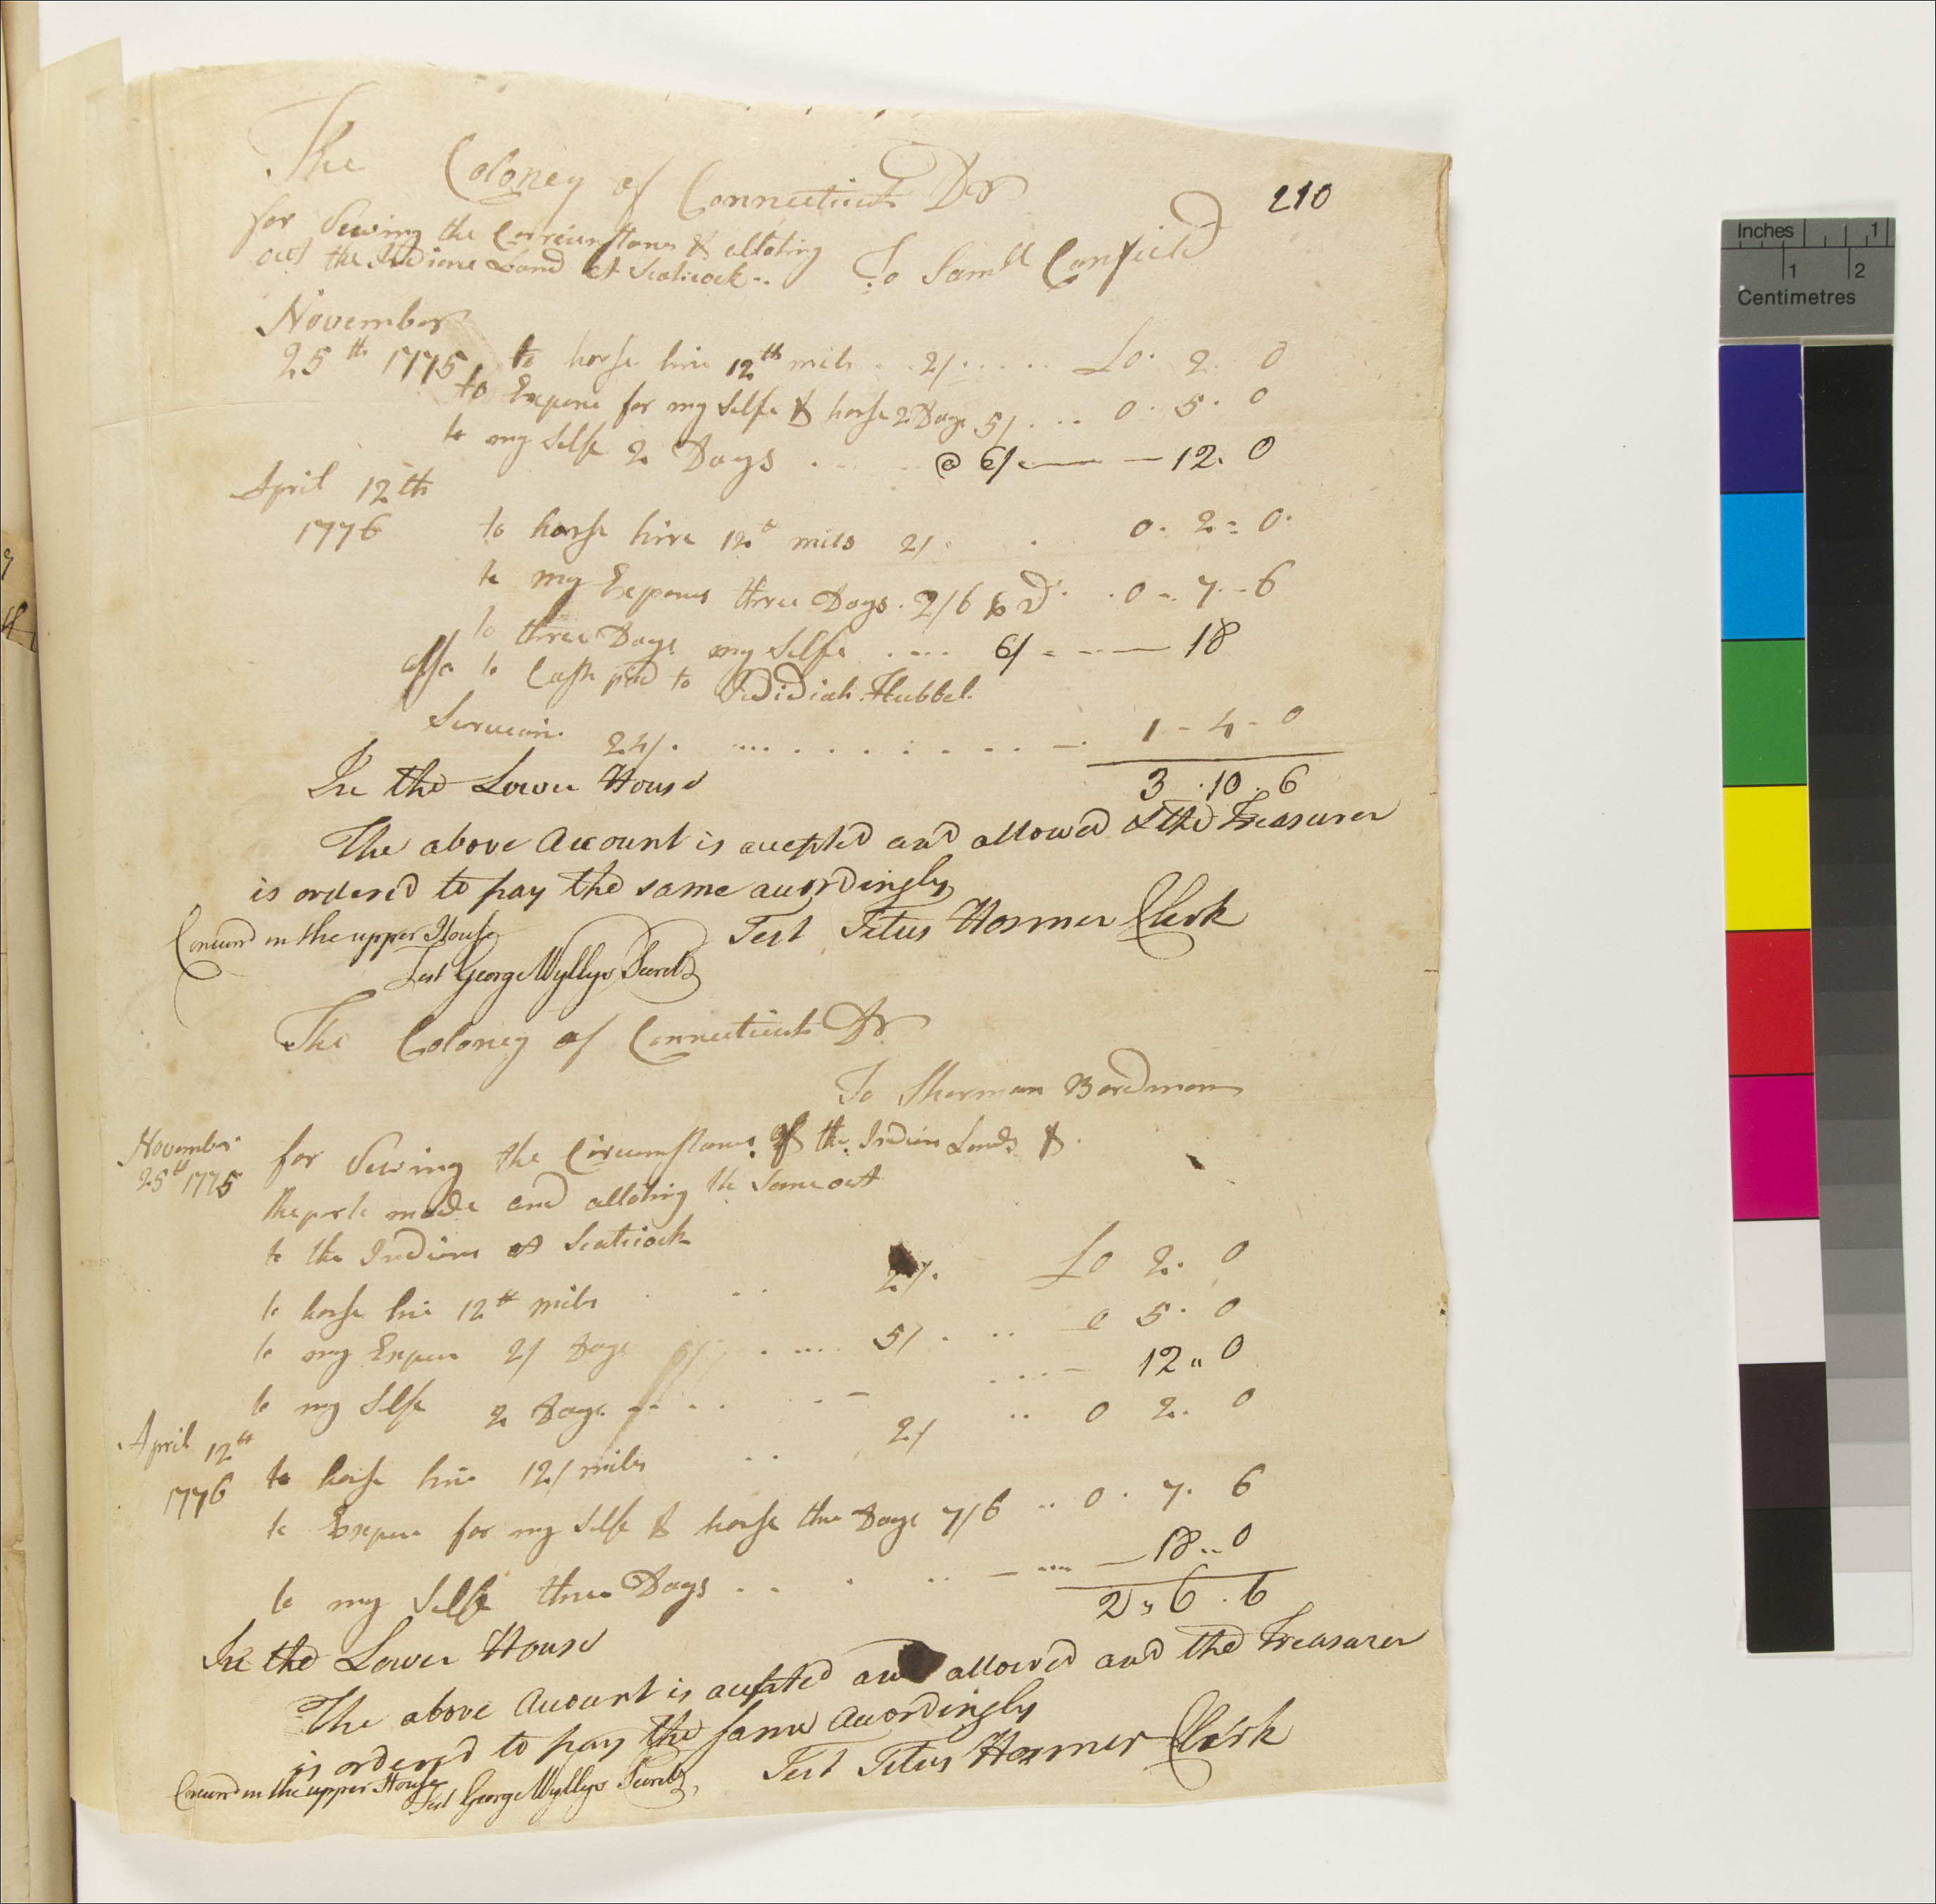 210
The Coloney of Connecticut Dr
for Vewing the Circumstans & alloting
out the Indians Land at Scaticock..
To Samll Canfield
November
25th 1775 to horse hire 12th mils .. 2/ ..... £0. 2. 0
to Expens for my Selfe & horse 2 Days 5/ .... 0. 5. 0
to my Selfe 2 Days @ 6/ —— — 12. 0
April 12th
1776 to horse hire 12th mils 2/ . 0. 2 = 0.
to my Expenses three Days . 2/6 pr D. . 0 - 7 - 6
to three Days my Selfe .... 6/ - - - — 18
also to Cash paid to Jedidiah Hubbel
24/. 1 - 4 - 0
3 . 10 . 6
In the Lower House
The above Account is accepted and allowed & the Treasurer
is ordered to pay the same accordingly
Test Titus Hosmer Clerk
Concurd in the upper House
Test George Wyllys Secrety
The Coloney of Connecticut Dr
To Sherman Bordman
November
25th 1775 for Vewing the Circumstans of the Indian Lands &
Reports made and alloting the Same out
to the Indians at Scaticock
to horse hire 12th miles . .. 2/. £0 2. 0
to my Expens 2/ Days .... 5/ . .. 0 5. 0
to my Selfe 2 Days 6/ .... — 12 " 0
April 12th
1776 to horse hire 12/ miles .. 2/ .. 0 2. 0
to Expens for my Selfe & horse three Days 7/6 .. 0 . 7. 6
to my Selfe three Days .. . .. — .... — 18 .. 0
2 " 6 . 6
In the Lower House
The above Account is accepted and allowed and the Treasurer
is ordered to pay the same accordingly
Test Titus Hosmer Clerk
Concurd in the upper House
Test George Wyllys Secrety
Inches 1
1 2
Centimetres